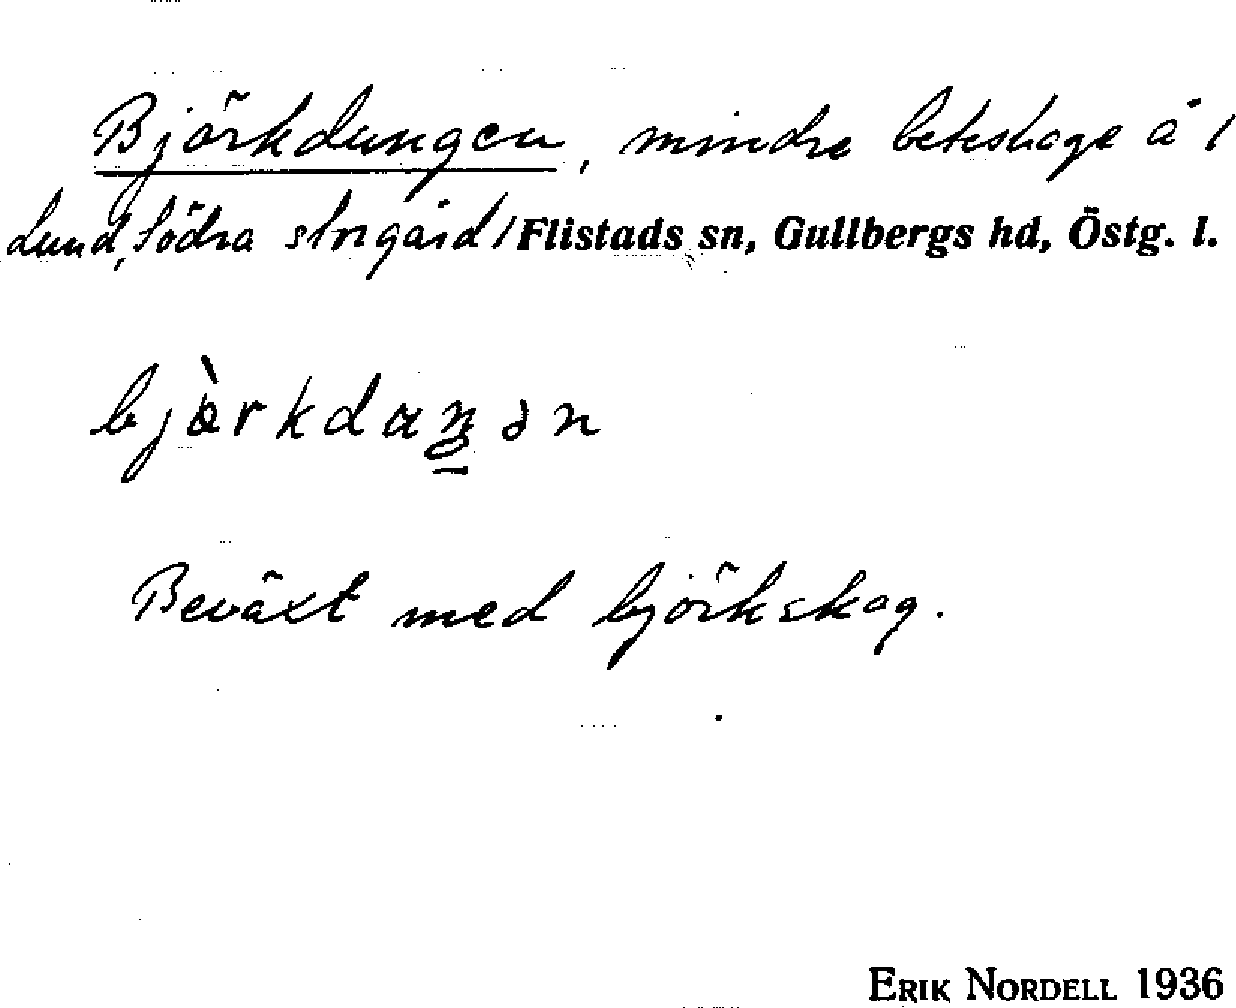 Björkdungen, mindre beteshage å /
Lund, södra storgård / Flistads sn, Gullbergs hd, Östg. l.
Beväxt med björkskog.
ERIK NORDELL 1936